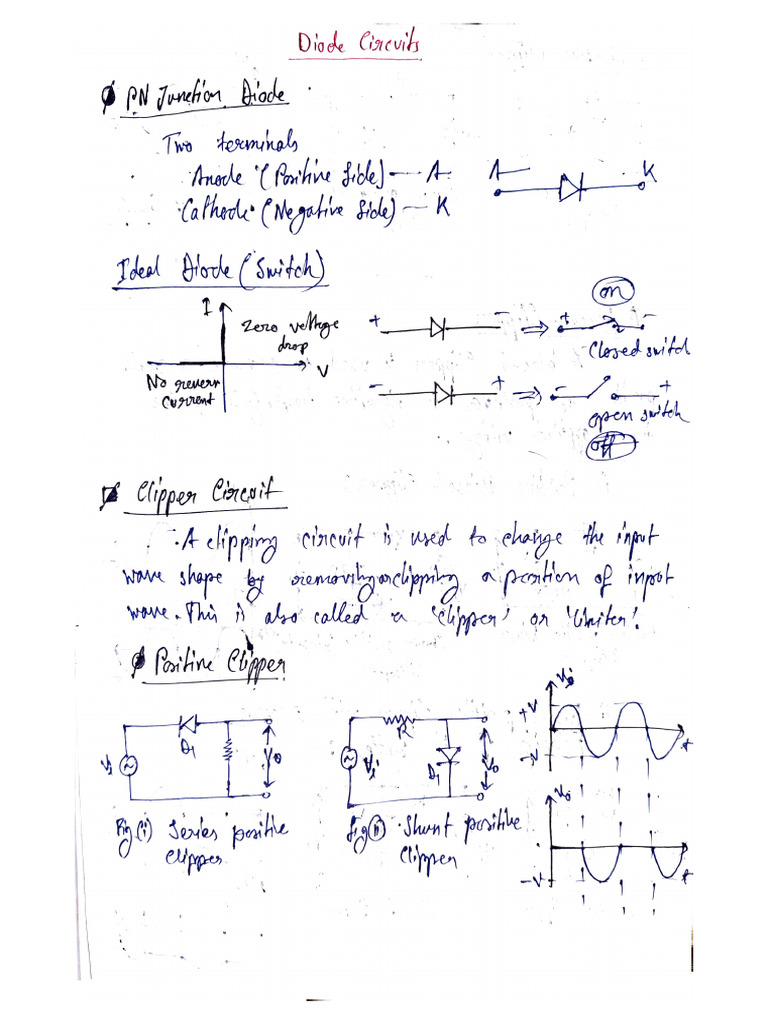 Diode Circuits
PN Junction Diode
Two terminals
Anode (Positive Side) — A
A K
Cathode (Negative Side) — K
Ideal Diode (Switch)
I
Zero voltage
drop
V
No revers
current
+ −
on
+ −
Closed switch
− +
− +
open switch
off
Clipper Circuit
A clipping circuit is used to change the input
wave shape by removing or clipping a position of input
wave. This is also called a 'Clipper' or 'limiter'.
Positive Clipper
Vi
D1
Vo
Fig (i) Series positive
Clipper
R
Vi
D1
Vo
Fig (ii) Shunt positive
Clipper
Vi
+V
−V
t
Vo
−V
t